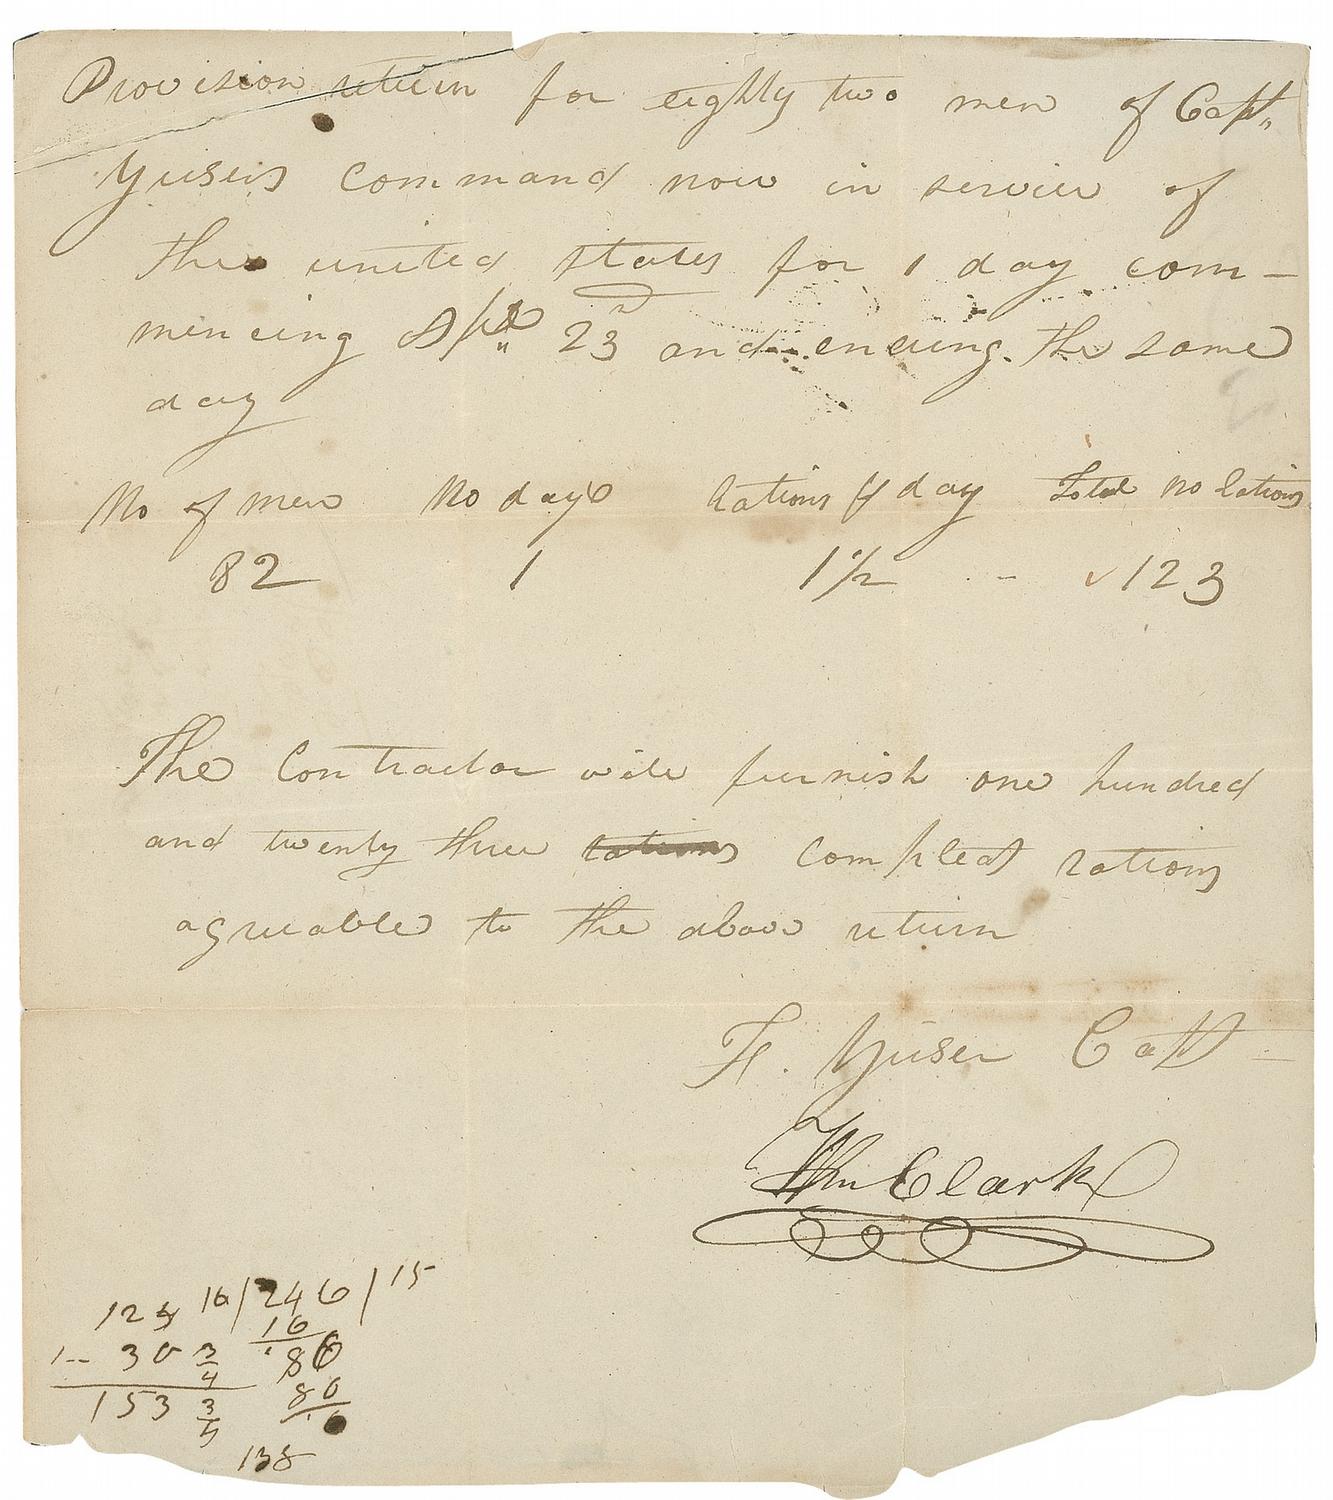 Provision return for eighty two men of Capt,,
Yuisers command now in service of
the united states for 1 day com-
mencing 23 and ending the same
day
No of men No days Rations pr day Total no Rations
82 1 1 1/2 - 123
The Contractor will furnish one hundred
and twenty three rations compleat rations
agreeable to the above return
F. Yuiser Capt
Wm Clark
123 16/246/15
1-- 30 3/4 16
86
153 3/4 80
6
138